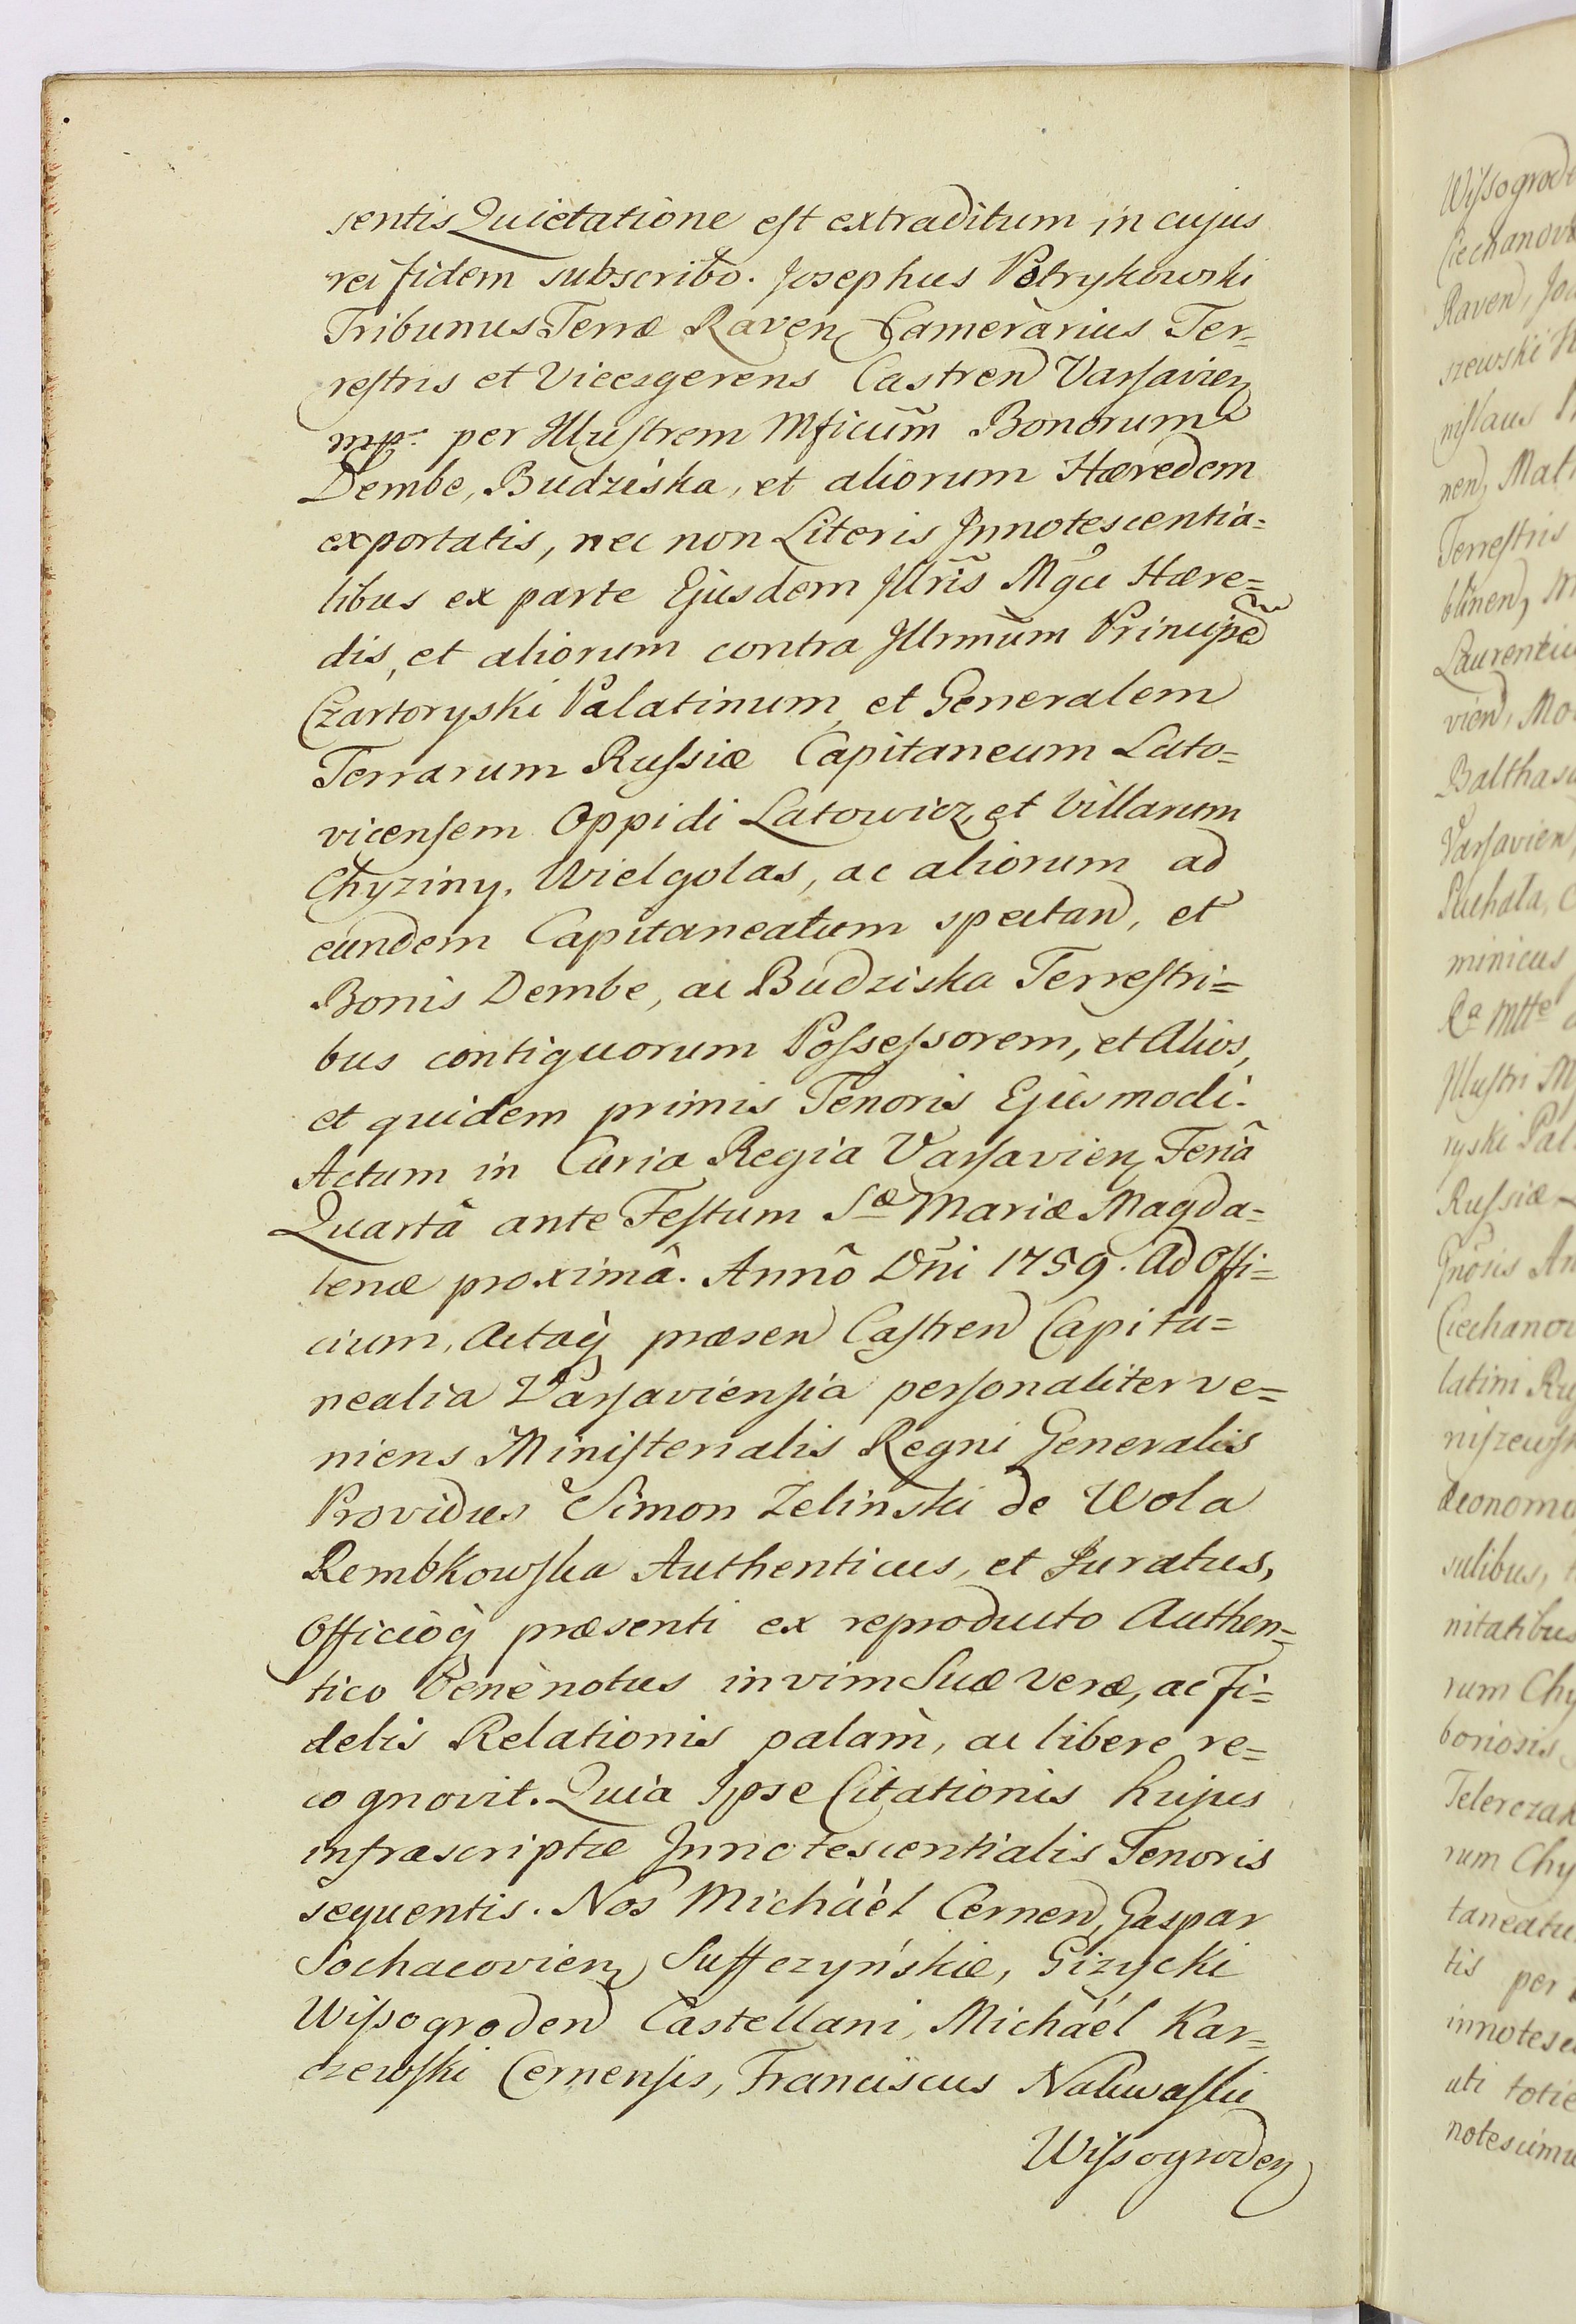 sentis Quietatione est extraditum in cujus
rei fidem subscribo. Josephus Petrykowski
Tribunus Terræ Raven Camerarius Ter=
restris et Vicesgerens Castren Varsavien
mp. per Illustrem Mficum Bonorum
Dembe, Budziska, et aliorum Hæredem
exportatis, nec non Literis Innotescentia=
libus ex parte Ejusdem Illris Mgci Hære=
dis, et aliorum contra Illrmum Principem
Czartoryski Palatinum, et Generalem
Terrarum Russiæ Capitaneum Lato=
vicensem Oppidi Latowicz, et Villarum
Chyziny, Wielgolas, ac aliorum ad
eundem Capitaneatum spectan, et
Bonis Dembe, ac Budziska Terrestri=
bus contiguorum Possessorem, et Alios,
et quidem primis Tenoris Ejusmodi.
Actum in Curia Regia Varsavien Feriâ
Quartâ ante Festum Sæ Mariæ Magda=
lenæ proximâ. Annô Dñi 1759. Ad Offi=
cium, Actaq̀ præsen Castren Capita=
nealia Varsaviensia personaliter ve=
niens Ministerialis Regni Generalis
Providus Simon Zelinski de Wola
Rembkowska Authenticus, et Juratus,
Officiòq̀ præsenti ex reproducto Authen=
tico Benè notus in vim Suæ veræ, ac fi=
delis Relationis palam, ac libere re=
cognovit. Quia Ipse Citationis hujus
infrascriptæ Innotescentialis Tenoris
sequentis. Nos Michàél Cernen, Gaspar
Sochacovien, Suffczyńskie, Gizycki
Wissogroden Castellani, Michàél Kar=
czewski Cernensis, Franciscus Nakwaski
Wissogroden
Wissogrode
Ciechanov
Raven, Jo
szewski
nislaus
nen, Mat
Terrestris
blinen,
Laurentiu
vien, Mo
Balthasa
Varsavien
Puchala, C
minicus
Ra Mtte
Illustri M
ryski Pal
Russiæ
Gnosis An
Ciechanov
latini Ru
niszewsk
æconomo
sulibus,
nitatibus
rum Chy
boriosis
Telerczak
rum Chy
taneatu
tis per
innotesc
uti totie
notescimu